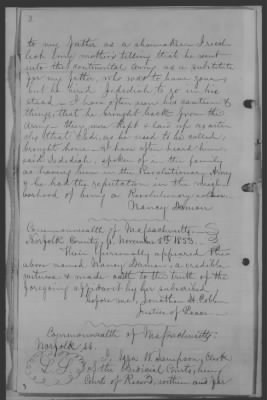 2
to my father as a shoemaker. I recol-
lect my mother's telling that he went
into the continental army as a substitute
for my father who was to have gone,
but he hired Jedediah to go in his
stead. I have often seen his canteen &
things, that he brought back from the
Army - they were kept & laid up as arti-
cles that Jed. as he used to be called
brought home. I have often heard him,
said Jedediah, spoken of in the family
as having been in the Revolutionary Army
& he had the reputation in the neigh-
borhood of being a Revolutionary
Nancy Damon
Commonwealth of Massachusetts
Norfolk County, November 8th 1853.
Then personally appeared the
above named Nancy Damon, a credible
witness & made oath to the truth of the
foregoing affidavit by her subscribed
before me, Jonathan H. Cobb
Justice of Peace
Commonwealth of Massachusetts
Norfolk ss.
I, Ezra W. Sampson, Clerk
of the Judicial Courts, being
Courts of Record, within and for
L.S.